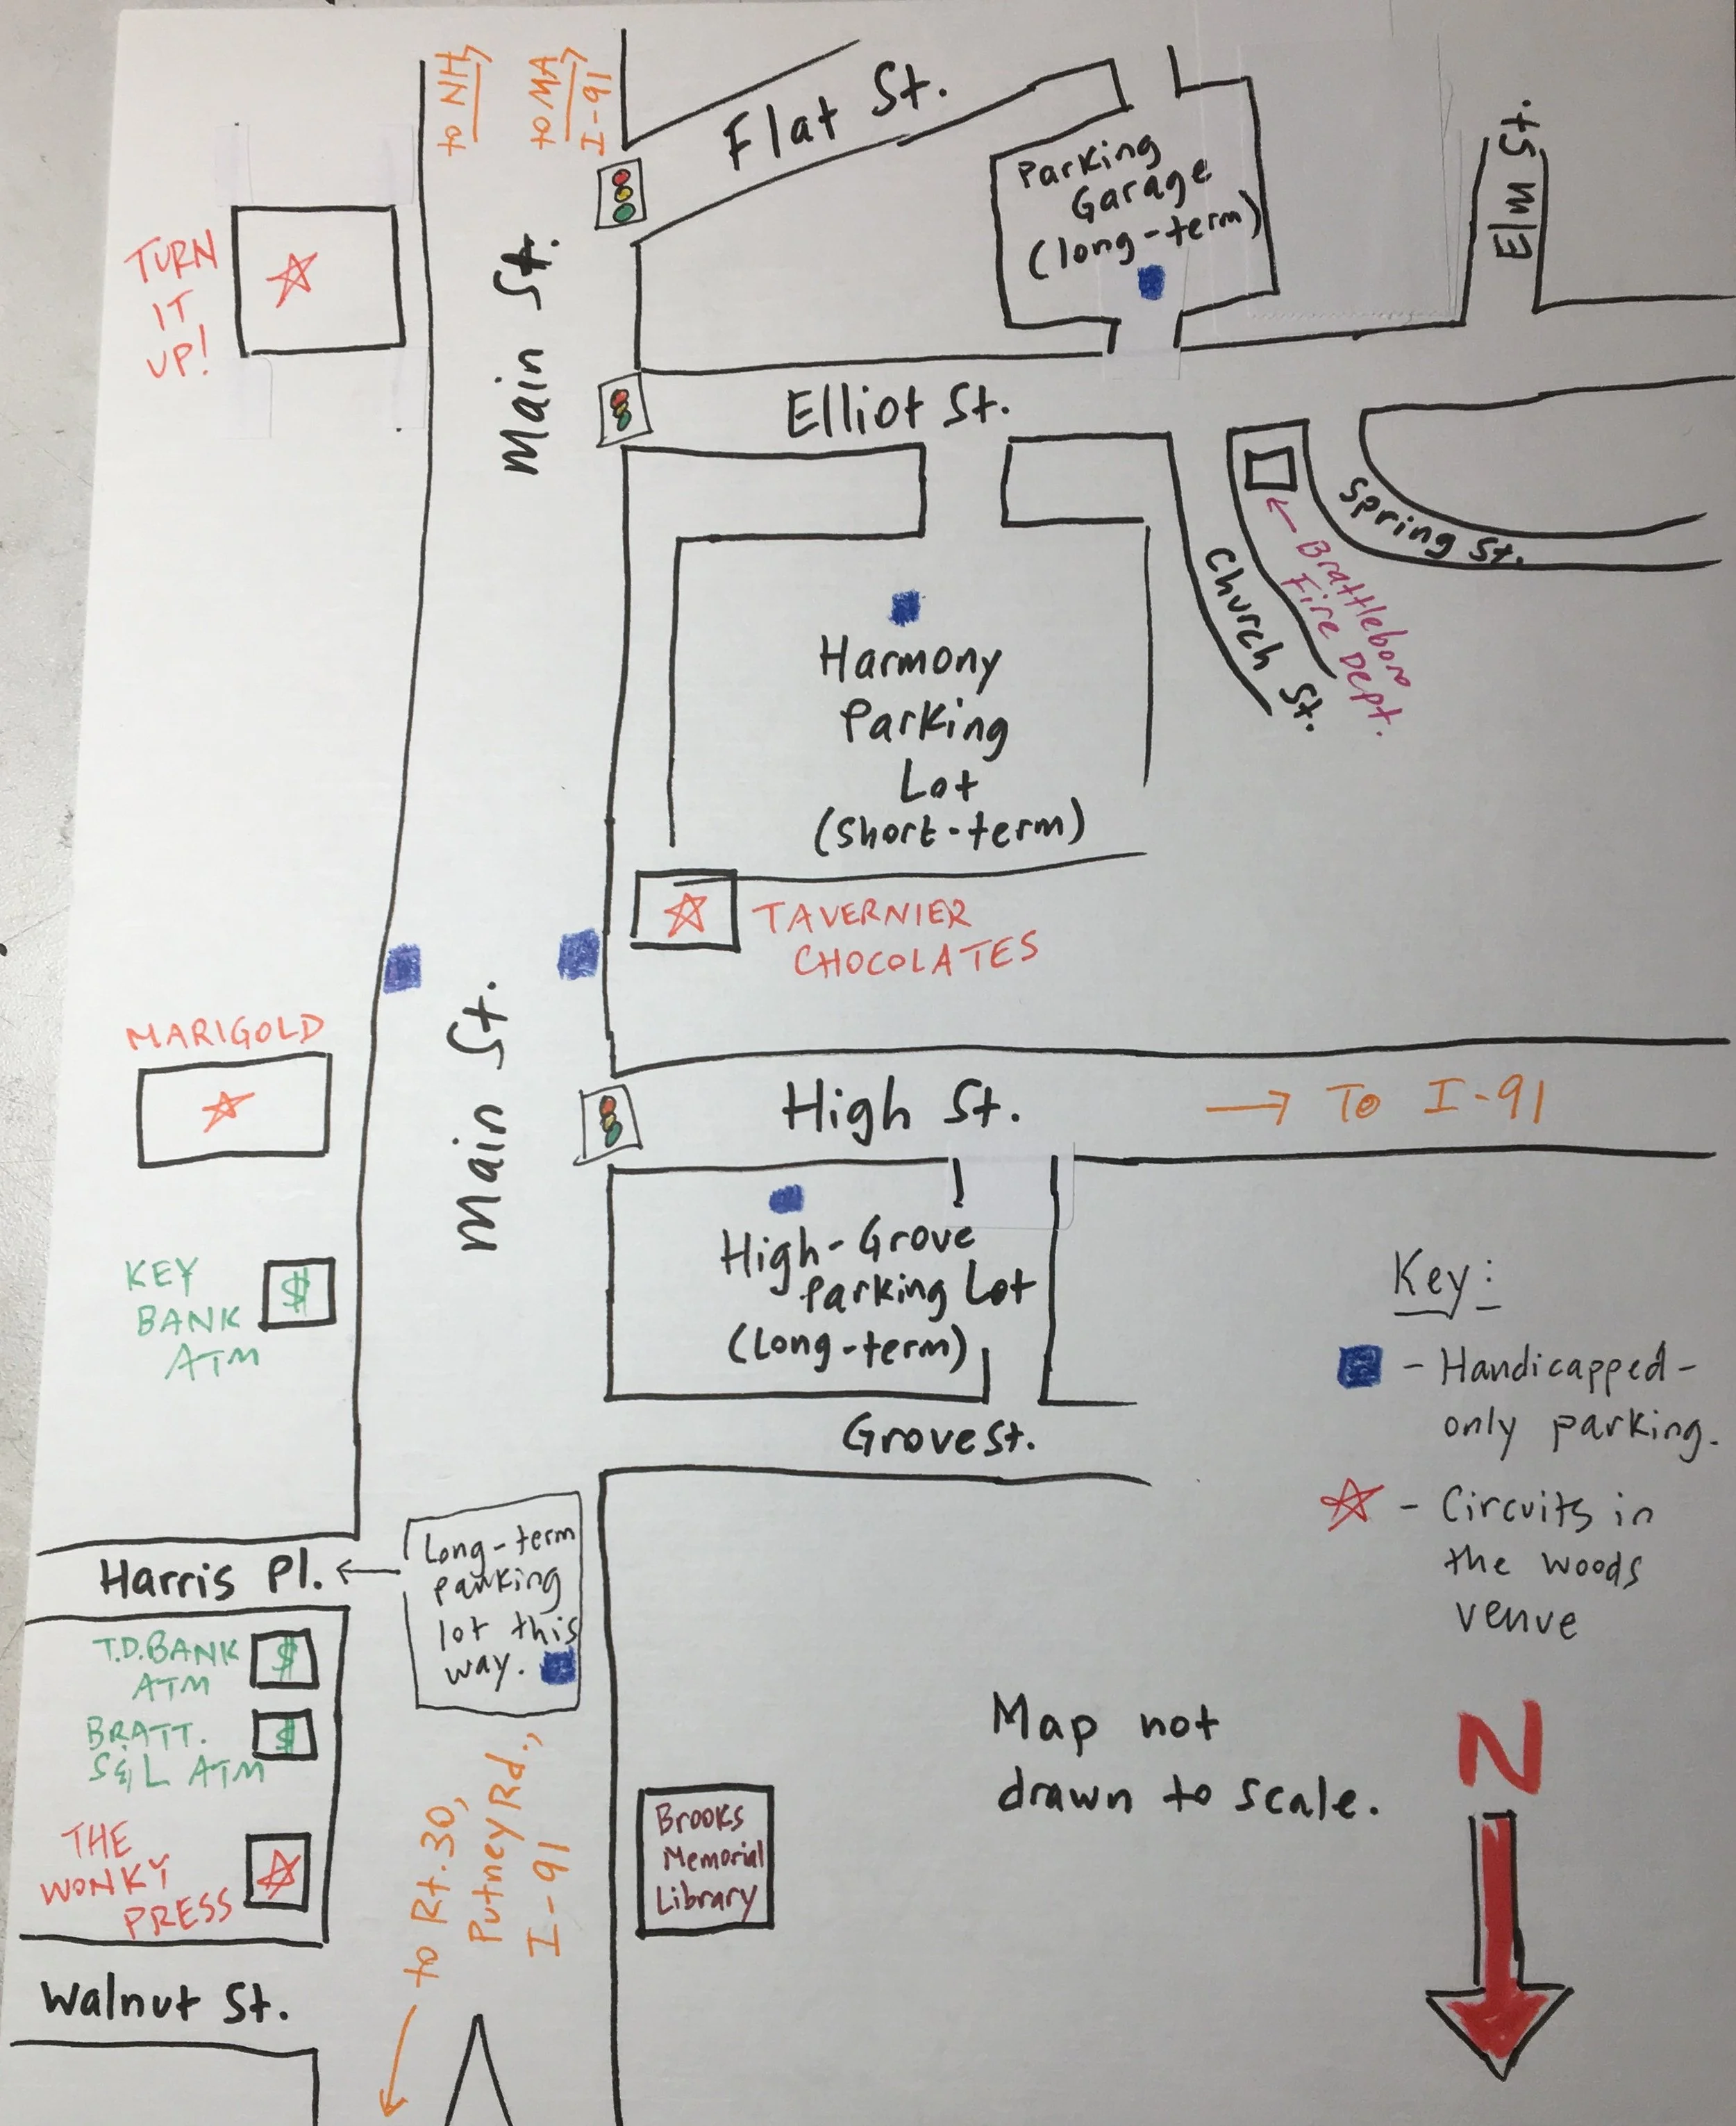 to NH
to MA
I-91
Flat St.
Parking
Garage
(long-term)
Elm St.
TURN
IT
UP!
Main St.
Elliot St.
Spring St.
Church St.
Brattleboro
Fire Dept.
Harmony
Parking
Lot
(short-term)
TAVERNIER
CHOCOLATES
MARIGOLD
Main St.
High St.
To I-91
KEY
BANK
ATM
$
High-Grove
Parking Lot
(Long-term)
Grove St.
Key:
- Handicapped-
only parking.
- Circuits in
the woods
venue
Harris Pl.
Long-term
parking
lot this
way.
T.D. BANK
ATM
$
BRATT.
S&L ATM
$
THE
WONKY
PRESS
to Rt. 30,
Putney Rd.,
I-91
Brooks
Memorial
Library
Map not
drawn to scale.
N
Walnut St.